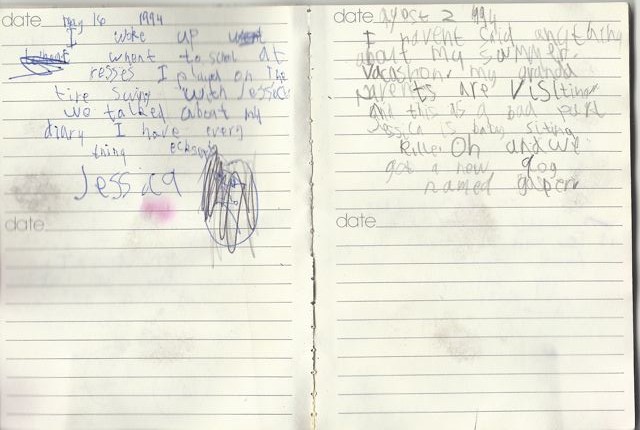 date may 16 1994
I woke up went
whent to scool At
resses I played on The
tire swing with Jessica
we talked about my
diary I have every
thing
Jessica
date
date Agost 2 1994
I havent said anything
about my summer
vacashon my grand
parents are visiting
and this is a bad part
Jessica is baby siting
Killer Oh and we
got a new dog
named gasperr
date